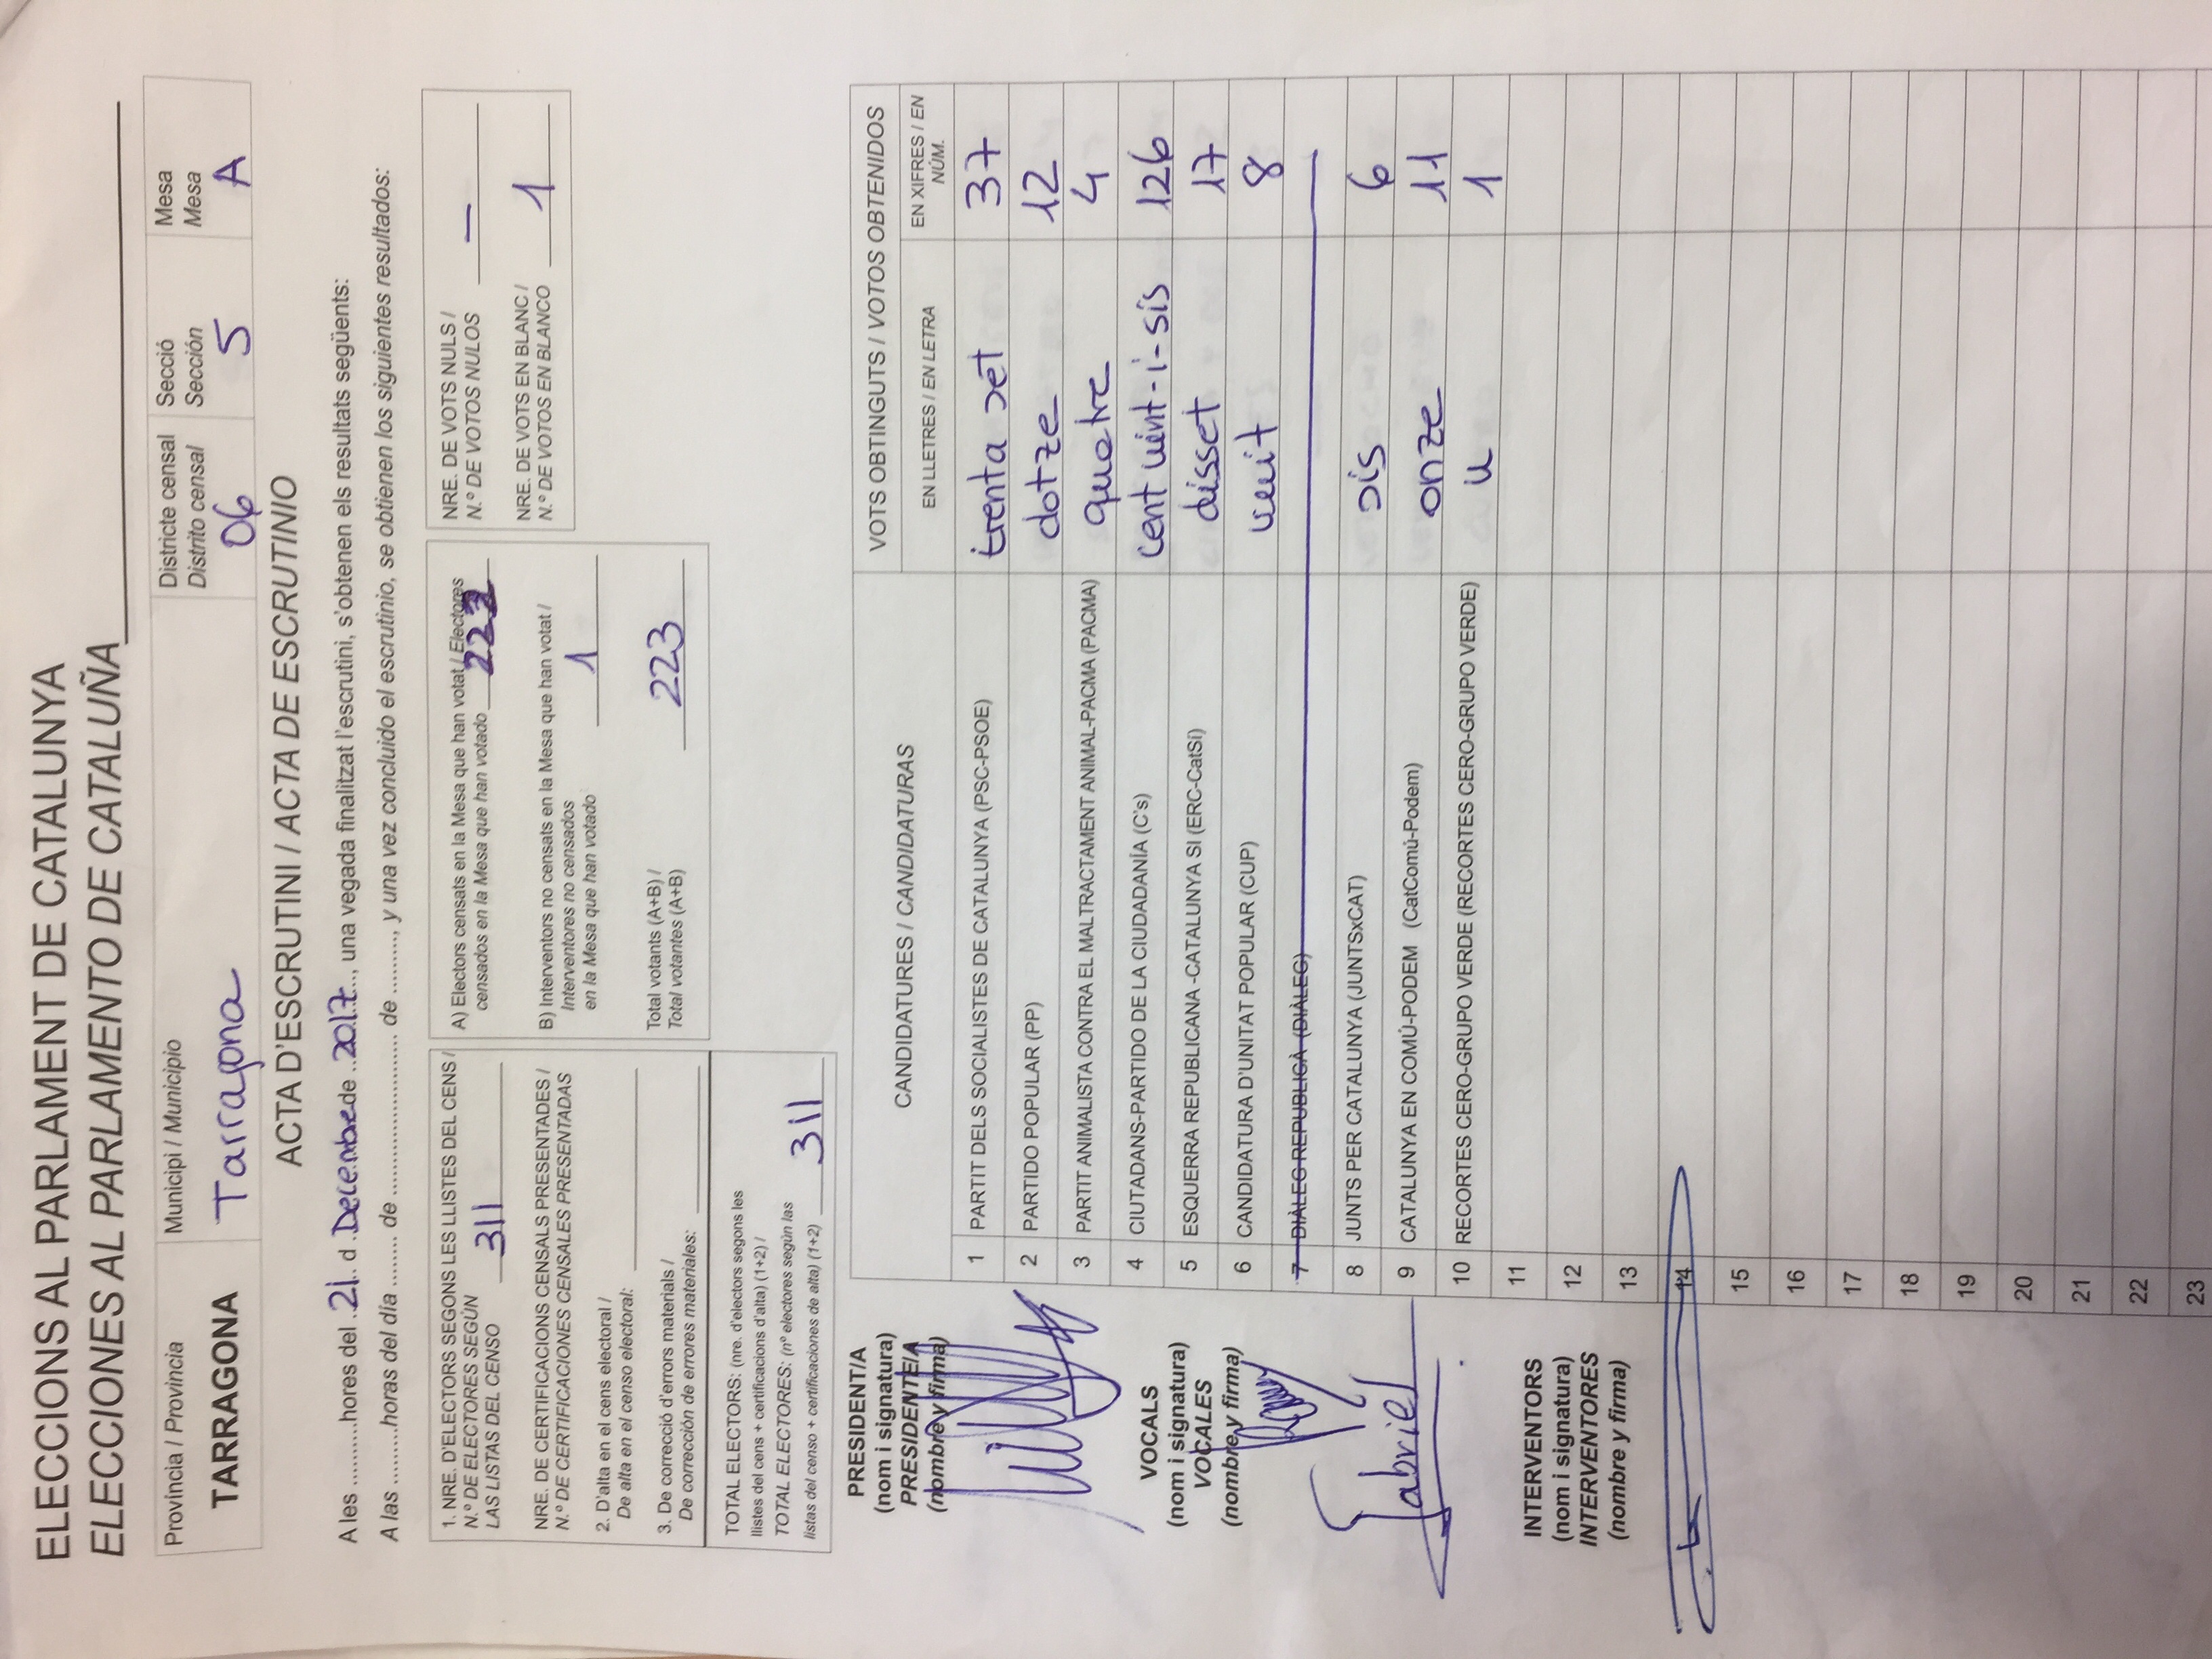 ELECCIONS AL PARLAMENT DE CATALUNYA
ELECCIONES AL PARLAMENTO DE CATALUÑA
Província / Provincia
TARRAGONA
Municipi / Municipio
Tarragona
Districte censal
Distrito censal
06
Secció
Sección
5
Mesa
Mesa
A
ACTA D'ESCRUTINI / ACTA DE ESCRUTINIO
A les ..........hores del .21.. d .Decembre de ..2017.., una vegada finalitzat l'escrutini, s'obtenen els resultats següents:
A las .........horas del día ........ de ......................... de ........., y una vez concluido el escrutinio, se obtienen los siguientes resultados:
1. NRE. D'ELECTORS SEGONS LES LLISTES DEL CENS /
N.º DE ELECTORES SEGÚN
LAS LISTAS DEL CENSO 311
NRE. DE CERTIFICACIONS CENSALS PRESENTADES /
N.º DE CERTIFICACIONES CENSALES PRESENTADAS
2. D'alta en el cens electoral /
De alta en el censo electoral:
3. De correcció d'errors materials /
De corrección de errores materiales:
TOTAL ELECTORS: (nre. d'electors segons les
llistes del cens + certificacions d'alta) (1+2) /
TOTAL ELECTORES: (nº electores según las
listas del censo + certificaciones de alta) (1+2) 311
A) Electors censats en la Mesa que han votat / Electores
censados en la Mesa que han votado
B) Interventors no censats en la Mesa que han votat /
Interventores no censados
en la Mesa que han votado 1
Total votants (A+B) /
Total votantes (A+B) 223
NRE. DE VOTS NULS /
N.º DE VOTOS NULOS —
NRE. DE VOTS EN BLANC /
N.º DE VOTOS EN BLANCO 1
PRESIDENT/A
(nom i signatura)
PRESIDENTE/A
(nombre y firma)
VOCALS
(nom i signatura)
VOCALES
(nombre y firma)
Gabriel
INTERVENTORS
(nom i signatura)
INTERVENTORES
(nombre y firma)
CANDIDATURES / CANDIDATURAS
VOTS OBTINGUTS / VOTOS OBTENIDOS
EN LLETRES / EN LETRA
EN XIFRES / EN
NÚM.
1 PARTIT DELS SOCIALISTES DE CATALUNYA (PSC-PSOE) trenta set 37
2 PARTIDO POPULAR (PP) dotze 12
3 PARTIT ANIMALISTA CONTRA EL MALTRACTAMENT ANIMAL-PACMA (PACMA) quatre 4
4 CIUTADANS-PARTIDO DE LA CIUDADANÍA (C's) cent vint-i-sis 126
5 ESQUERRA REPUBLICANA -CATALUNYA SI (ERC-CatSí) disset 17
6 CANDIDATURA D'UNITAT POPULAR (CUP) vuit 8
7 DIÀLEG REPUBLICÀ (DIÀLEG)
8 JUNTS PER CATALUNYA (JUNTSxCAT) sis 6
9 CATALUNYA EN COMÚ-PODEM (CatComú-Podem) onze 11
10 RECORTES CERO-GRUPO VERDE (RECORTES CERO-GRUPO VERDE) u 1
11
12
13
14
15
16
17
18
19
20
21
22
23